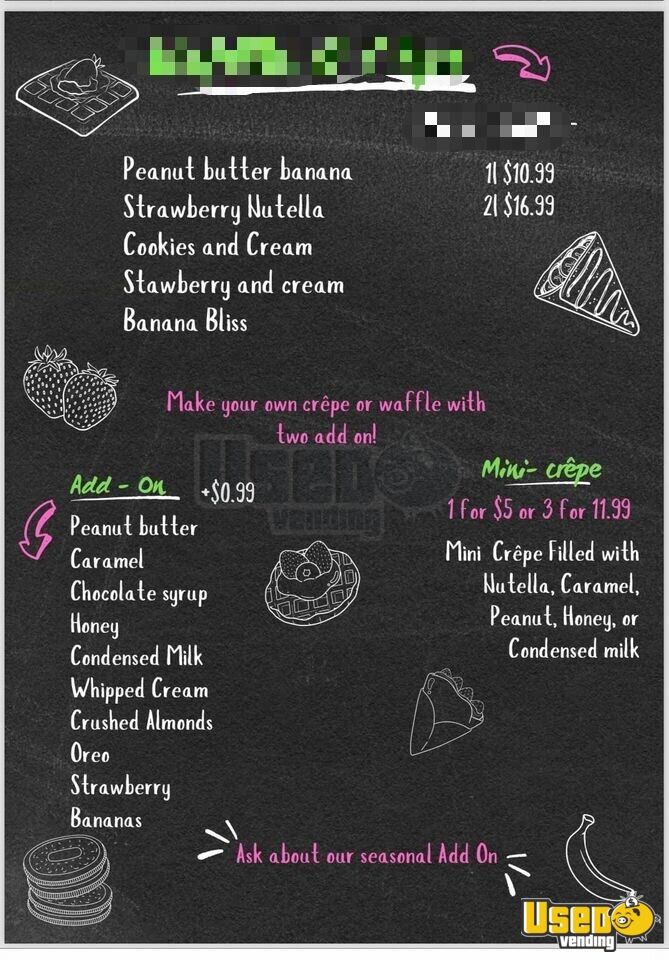 Peanut butter banana 1| $10.99
Strawberry Nutella 2| $16.99
Cookies and Cream
Stawberry and cream
Banana Bliss
Make your own crêpe or waffle with
two add on!
Add - On +$0.99
Peanut butter
Caramel
Chocolate syrup
Honey
Condensed Milk
Whipped Cream
Crushed Almonds
Oreo
Strawberry
Bananas
Mini- crêpe
1 for $5 or 3 for 11.99
Mini Crêpe Filled with
Nutella, Caramel,
Peanut, Honey, or
Condensed milk
Used
vending
Ask about our seasonal Add On
Used
vending